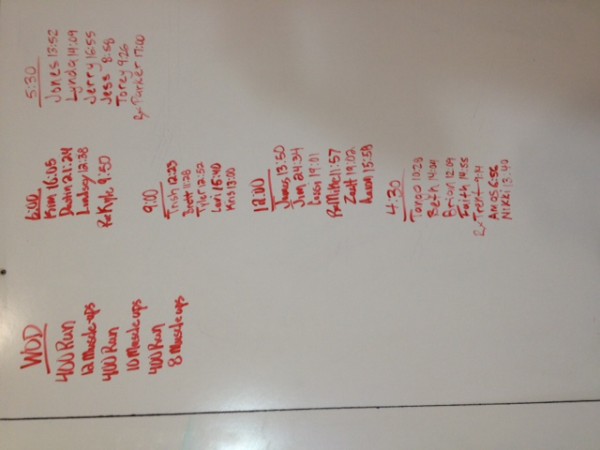 WOD
400 Run
12 Muscle-ups
400 Run
10 Muscle-ups
400 Run
8 Muscle ups
6:00
Kim 16:05
Dustin 21:24
Lindsay 12:38
Rx Kyle 9:50
9:00
Trish 12:23
Brett 11:28
Tyler 12:52
Lori 15:40
Kris 13:00
12:00
James 13:50
Jen 24:34
Casey 19:01
Rx Mitch 11:57
Zach 19:02
Aaron 15:59
4:30
10:28
Beth 14:04
Brian 12:09
Faith 14:55
Rx Trent 9:14
Amos 6:56
Nikki 13:40
5:30
Jones 13:52
Lynda 14:09
Jerry 16:55
Jess 8:58
Torey 9:26
Rx Turner 17:00